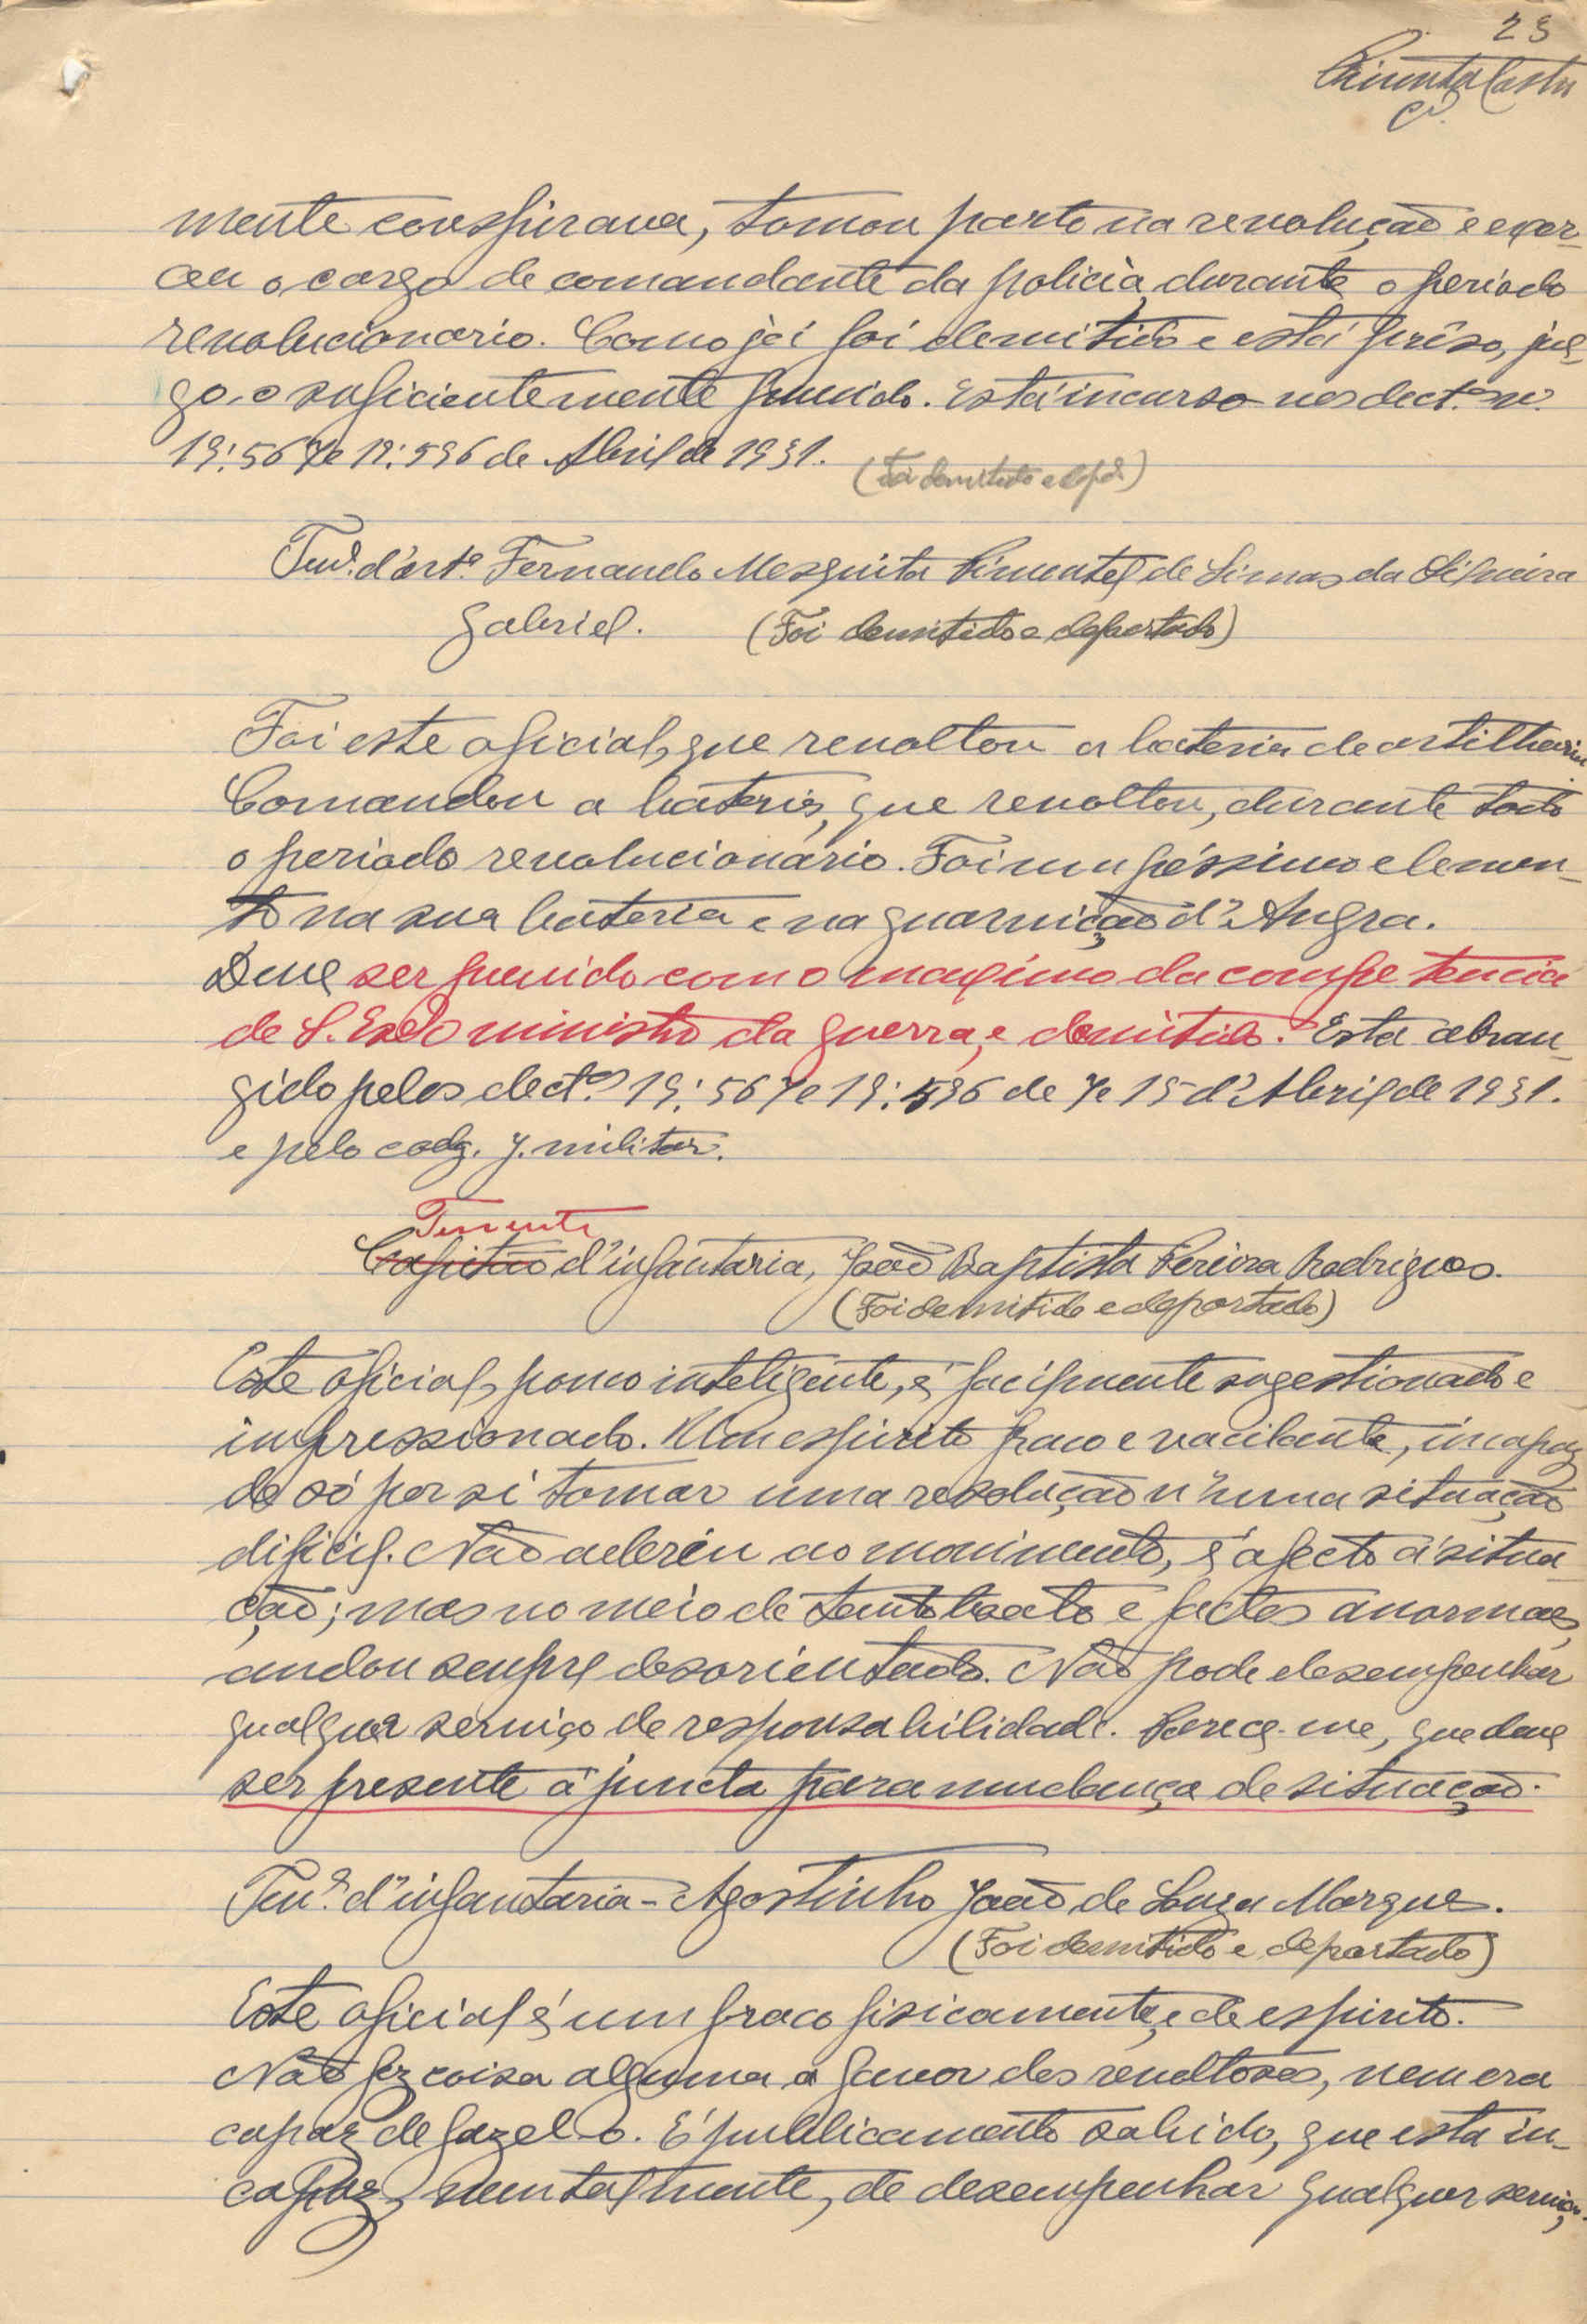 23
Pimenta Castro
mente conspirava, tomou parte na revolução e exer-
ceu o cargo de comandante da policia, durante o periodo
revolucionario. Como já foi demitido e está prêso, jul-
go-o suficientemente punido. Está incurso nos dect.os n.os
19:567 e 19:596 de Abril de 1931. (Foi demitido e dep.do)
Ten.e d'art.a Fernando Mesquita Pimentel de Simas da Silveira
Gabriel. (Foi demitido e deportado)
Foi este oficial, que revoltou a bateria de artilharia
Comandou a bateria, que revoltou, durante todo
o periodo revolucionário. Foi um péssimo elemen-
to na sua bateria e na guarnição d'Angra.
Deve ser punido com o maximo da competencia
de S. Exa o ministro da guerra, e demitido. Está abran-
gido pelos dect.os 19:567 e 19:596 de 7 e 15 d'Abril de 1931.
e pelo codg. j. militar.
Tenente
Capitão d'infantaria, João Baptista Pereira Rodrigues.
(Foi demitido e deportado)
Este oficial, pouco inteligente, é facilmente sugestionado e
impressionado. Um espirito fraco e vacilante, incapaz
de só por si tomar uma resolução n'uma situação
dificil. Não aderiu ao movimento, é afecto á situa
ção; mas no meio de tanto boato e factos anormaes,
andou sempre desorientado. Não pode desempenhar
qualquer serviço de responsabilidade. Parece-me, que deve
ser presente á juncta para mudança de situação.
Ten.e d'infantaria - Agostinho João de Souza Marques.
(Foi demitido e deportado)
Este oficial é um fraco fisicamente, e de espirito.
Não fez coisa alguma a favor dos revoltosos, nem era
capaz de fazel-o. É publicamente sabido, que está in-
capaz, mentalmente, de desempenhar qualquer serviço.